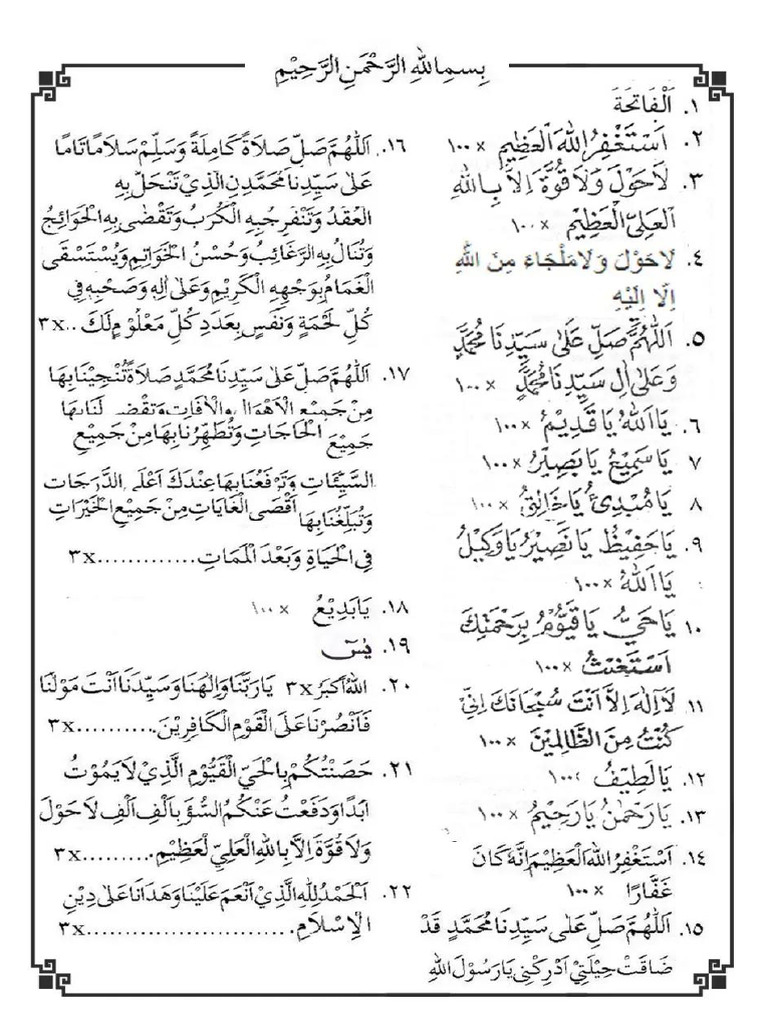 بِسْمِ اللهِ الرَّحْمَنِ الرَّحِيْمِ
١. اَلْفَاتِحَةَ
٢. اَسْتَغْفِرُ اللهَ الْعَظِيْمِ × ١٠٠
٣. لَاحَوْلَ وَلَا قُوَّةَ اِلَّا بِاللهِ
الْعَلِيِّ الْعَظِيْمِ × ١٠٠
٤. لَاحَوْلَ وَلَامَلْجَاءَ مِنَ اللهِ
اِلَّا اِلَيْهِ
٥. اَللّٰهُمَّ صَلِّ عَلَى سَيِّدِنَا مُحَمَّدٍ
وَعَلَى اٰلِ سَيِّدِنَا مُحَمَّدٍ × ١٠٠
٦. يَا اَللهُ يَا قَدِيْمُ × ١٠٠
٧ يَا سَمِيْعُ يَا بَصِيْرُ × ١٠٠
٨ يَا مُبْدِئُ يَا خَالِقُ × ١٠٠
٩. يَا حَفِيْظُ يَا نَصِيْرُ يَا وَكِيْلُ
يَا اَللهُ × ١٠٠
١٠. يَا حَيُّ يَا قَيُّوْمُ بِرَحْمَتِكَ
اَسْتَغِيْثُ × ١٠٠
١١. لَا اِلٰهَ اِلَّا اَنْتَ سُبْحَانَكَ اِنِّيْ
كُنْتُ مِنَ الظَّالِمِيْنَ × ١٠٠
١٢. يَا لَطِيْفُ ١٠٠٠
١٣. يَا رَحْمٰنُ يَا رَحِيْمُ × ١٠٠
١٤. اَسْتَغْفِرُ اللهَ الْعَظِيْمَ اِنَّهُ كَانَ
غَفَّارًا × ١٠٠
١٥. اَللّٰهُمَّ صَلِّ عَلَى سَيِّدِنَا مُحَمَّدٍ قَدْ
ضَاقَتْ حِيْلَتِيْ اَدْرِكْنِيْ يَا رَسُوْلَ اللهِ
١٦. اَللّٰهُمَّ صَلِّ صَلَاةً كَامِلَةً وَسَلِّمْ سَلَامًا تَامًا
عَلَى سَيِّدِنَا مُحَمَّدِنِ الَّذِيْ تَنْحَلُّ بِهِ
الْعُقَدُ وَتَنْفَرِجُ بِهِ الْكُرَبُ وَتُقْضَى بِهِ الْحَوَائِجُ
وَتُنَالُ بِهِ الرَّغَائِبُ وَحُسْنُ الْخَوَاتِمِ وَيُسْتَسْقَى
الْغَمَامُ بِوَجْهِهِ الْكَرِيْمِ وَعَلَى اٰلِهِ وَصَحْبِهِ فِيْ
كُلِّ لَمْحَةٍ وَنَفَسٍ بِعَدَدِ كُلِّ مَعْلُوْمٍ لَكَ ..٣x
١٧. اَللّٰهُمَّ صَلِّ عَلَى سَيِّدِنَا مُحَمَّدٍ صَلَاةً تُنْجِيْنَا بِهَا
مِنْ جَمِيْعِ الْاَهْوَالِ وَالْاٰفَاتِ وَتَقْضِيْ لَنَا بِهَا
جَمِيْعَ الْحَاجَاتِ وَتُطَهِّرُنَا بِهَا مِنْ جَمِيْعِ
السَّيِّئَاتِ وَتَرْفَعُنَا بِهَا عِنْدَكَ اَعْلَى الدَّرَجَاتِ
وَتُبَلِّغُنَا بِهَا اَقْصَى الْغَايَاتِ مِنْ جَمِيْعِ الْخَيْرَاتِ
فِى الْحَيَاةِ وَبَعْدَ الْمَمَاتِ.............٣x
١٨. يَا بَدِيْعُ × ١٠٠
١٩. يٰسٓ
٢٠. اَللهُ اَكْبَرُ ٣x يَا رَبَّنَا وَاِلٰهَنَا وَسَيِّدَنَا اَنْتَ مَوْلٰنَا
فَانْصُرْنَا عَلَى الْقَوْمِ الْكَافِرِيْنَ..........٣x
٢١. حَصَنْتُكُمْ بِالْحَيِّ الْقَيُّوْمِ الَّذِيْ لَا يَمُوْتُ
اَبَدًا وَدَفَعْتُ عَنْكُمُ السُّؤَ بِاَلْفِ اَلْفِ لَا حَوْلَ
وَلَا قُوَّةَ اِلَّا بِاللهِ الْعَلِيِّ لْعَظِيْمِ.........٣x
٢٢. اَلْحَمْدُ لِلّٰهِ الَّذِيْ اَنْعَمَ عَلَيْنَا وَهَدَانَا عَلَى دِيْنِ
الْاِسْلَامِ.............................٣x